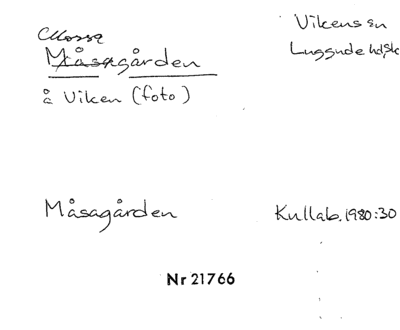 Mossa
Måsagården
å Viken (foto)
Vikens sn
Luggude hd, Sk
Måsagården
Kullab. 1980:30
Nr 21766